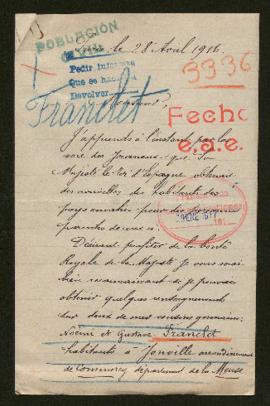 le 28 Avril 1916.
POBLACIÓN
Pedir informe
Que se ha
Devolver
3336
Franclet
Fecho
e.a.e.
J'apprends à l'instant par la
voie des journaux que Sa
Majesté le Roi d'Espagne obtenait
des nouvelles des habitants des
pays envahis pour des personnes
parentes de ceux-ci.
Désirant profiter de la bonté
Royale de Sa Majesté je vous serais
bien reconnaissant si je pouvais
obtenir quelques renseignements
sur deux de mes cousins germains:
Noémi et Gustave Franclet
habitants à Jonville arrondissement
de Commercy département de la Meuse